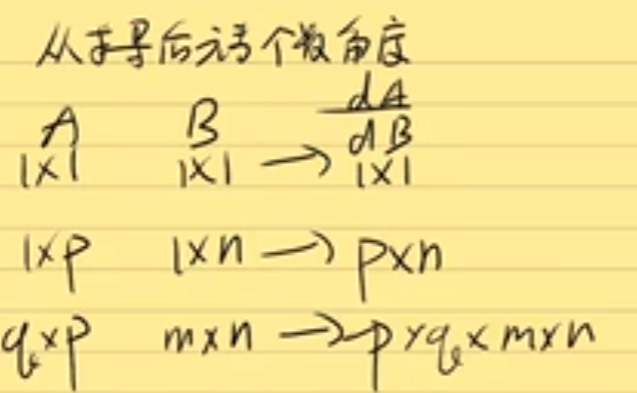 从求导后元素个数角度
A B dA
dB
1×1 1×1 → 1×1
1×p 1×n → p×n
q×p m×n → p×q×m×n